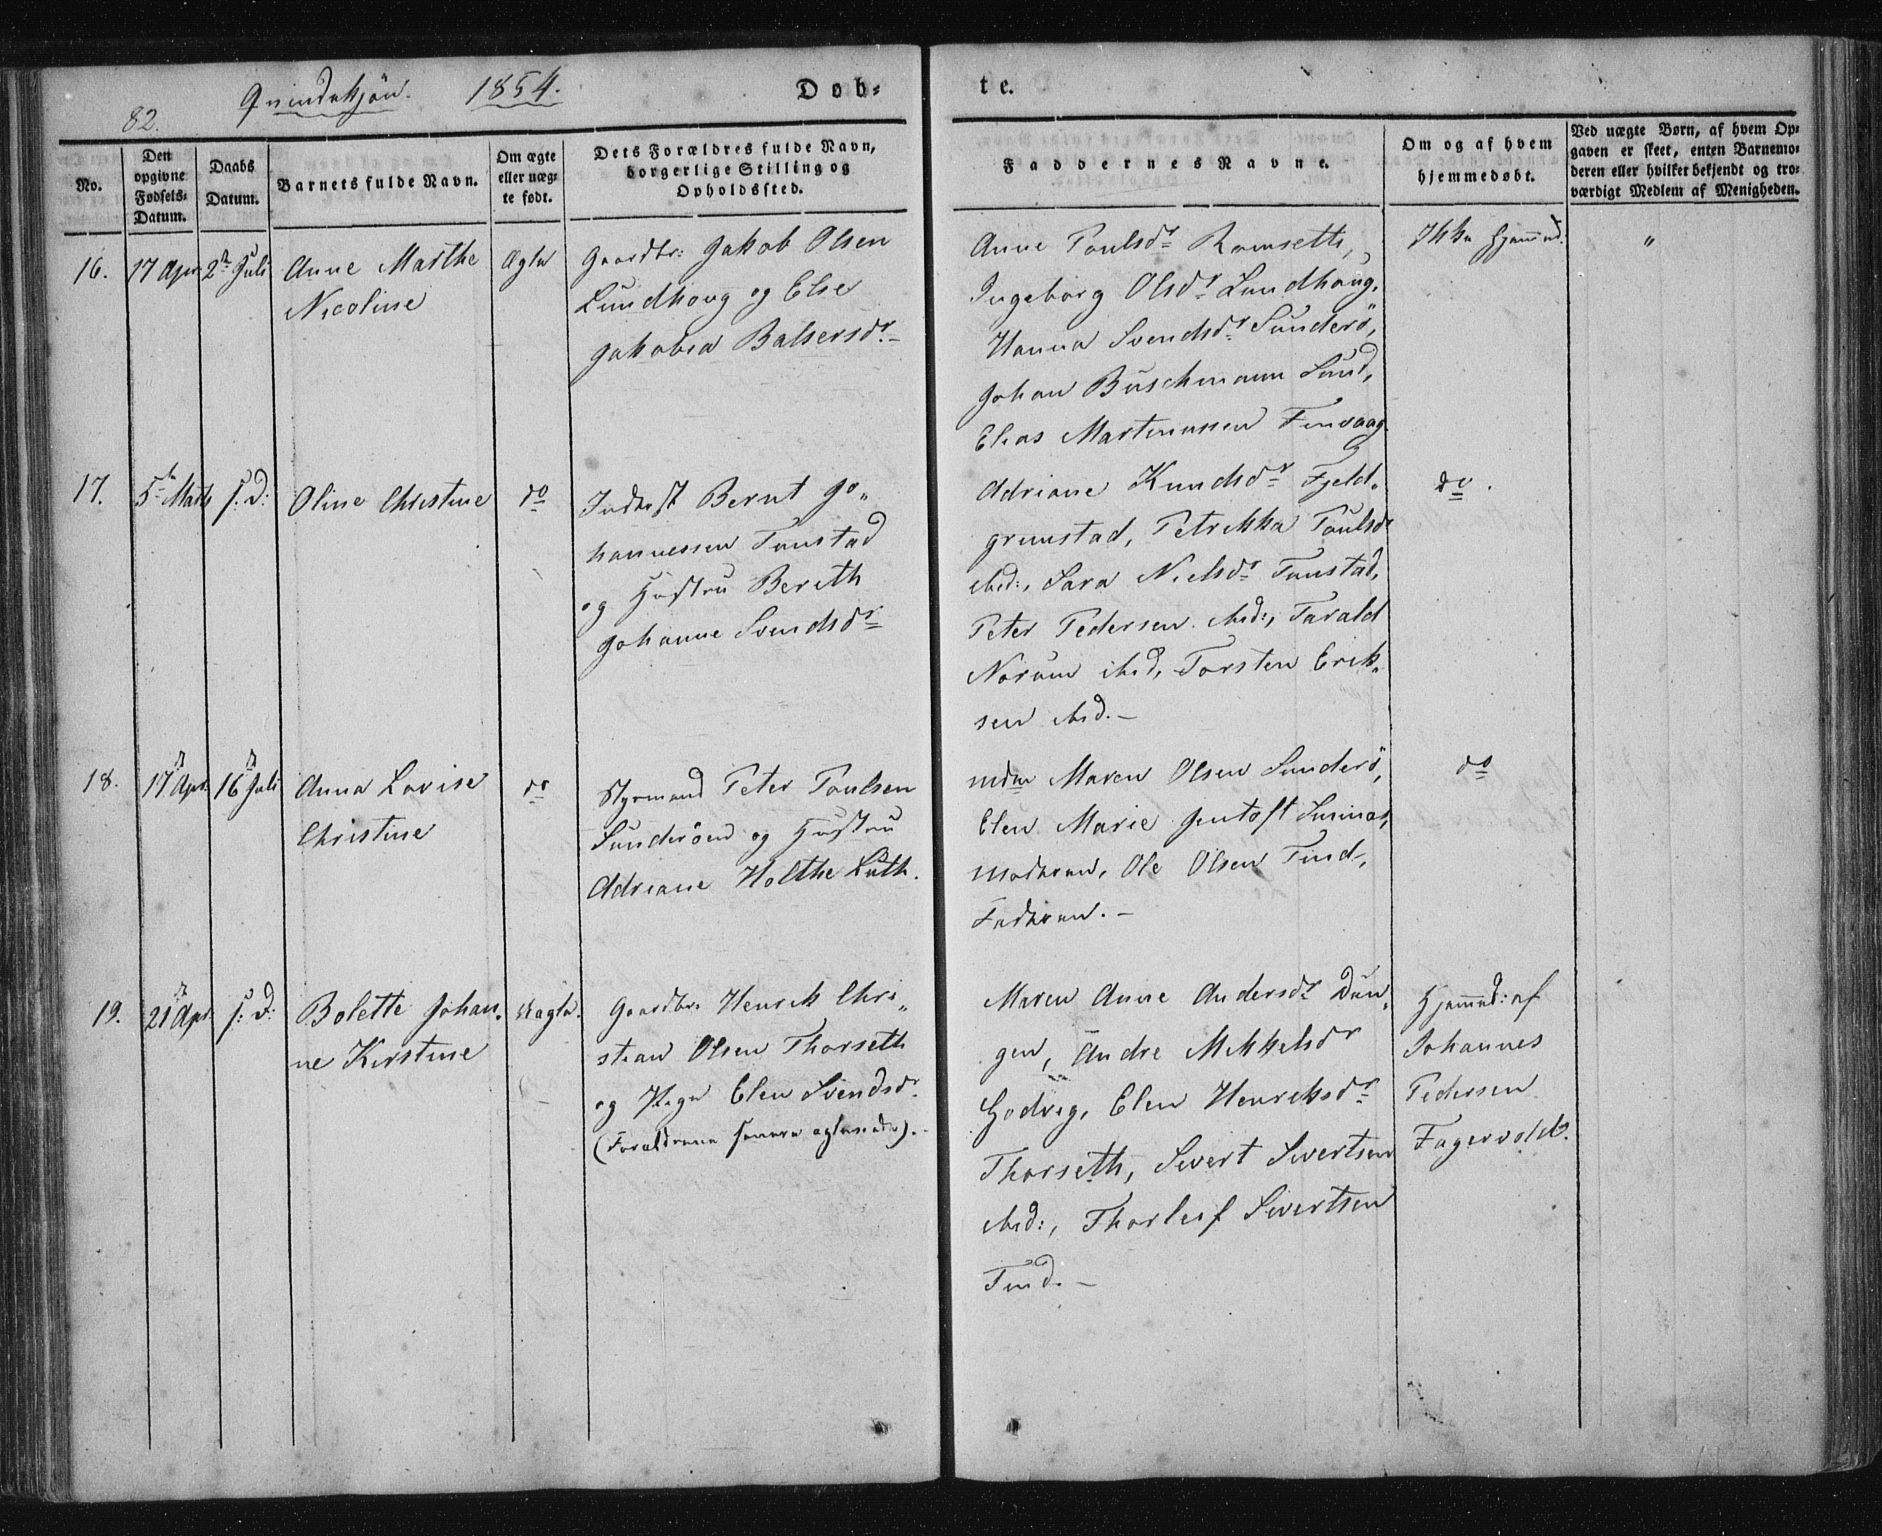 82.
Qvindekjön. 1854.
Döb-
te.
No.
Den opgivne Fødsels-Datum.
Daabs Datum.
Barnets fulde Navn.
Om ægte eller uæg-te født.
Dets Forældres fulde Navn, borgerlige Stilling og Opholdssted.
Faddernes Navne.
Om og af hvem hjemmedøbt.
Ved uægte Børn, af hvem Op-
gaven er skeet, enten Barnemo-
deren eller hvilket bekjendt og tro-
værdigt Medlem af Menigheden.
16.
17 Apr.
2den Juli
Anne Marthe
Nicoline
Ægte
Gaardbr. Jakob Olsen
Lundhoug og Else
Jakobea Balsersdr.
Anne Poulsdr
Ingeborg Olsdr Lundhoug,
Hanna Svendsdr Sunderö,
Johan Buschmann Sund,
Elias Martinussen Finvaag
Ikke hjemmed.
"
17.
5te Marts
s: D:
Oline Christine
do
Inderst Bernt Jo-
hannessen Tunstad
og Hustru Bereth
Johanne Svendsdr
Adriane Knudsdr Fjeld-
grunstad, Petrikka Poulsdr
ibid:, Sara Nielsdr Tunstad,
Peter Pedersen ibid:, Tarald
Norum ibid, Torsten Erik-
sen ibid.-
do.
18.
17 Apr.
16 Juli
Anna Lovise
Christine
do
Styrmand Peter Poulsen
Sunderöen og Hustru
Adriane Holthe Lüth.
Mdm Maren Olsen Sunderö,
Elen Marie Jentoft
Moderen, Ole Olsen Tind,
Faderen.-
do
19.
21 Apr
s: D:
Bolette Johan-
ne Kirstine
Uægte.
Gaardbr. Henrik Chri-
stian Olsen Thorseth
og Pige Elen Svendsdr.
(Forældrene senere ægteviede).
Maren Anne Andersdr Dun-
gen, Andre Mikkelsdr
Godveg, Elen Henriksdr
Thorseth, Sivert Sivertsen
ibid:, Thorleif Sivertsen
Tind.-
Hjemmed: af
Johannes
Pedersen
Fagervold.